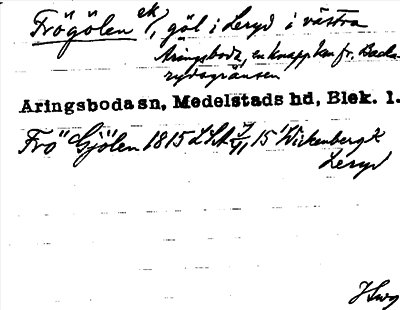 Frögölen ek/, göl i Leryd i västra
Aringsboda, en knapp km fr. Backa-
rydsgränsen
Aringsboda sn, Medelstads hd, Blek. l.
Frö Gjölen 1815 LSA 7/VI 15 Wickenberg k
Leryd